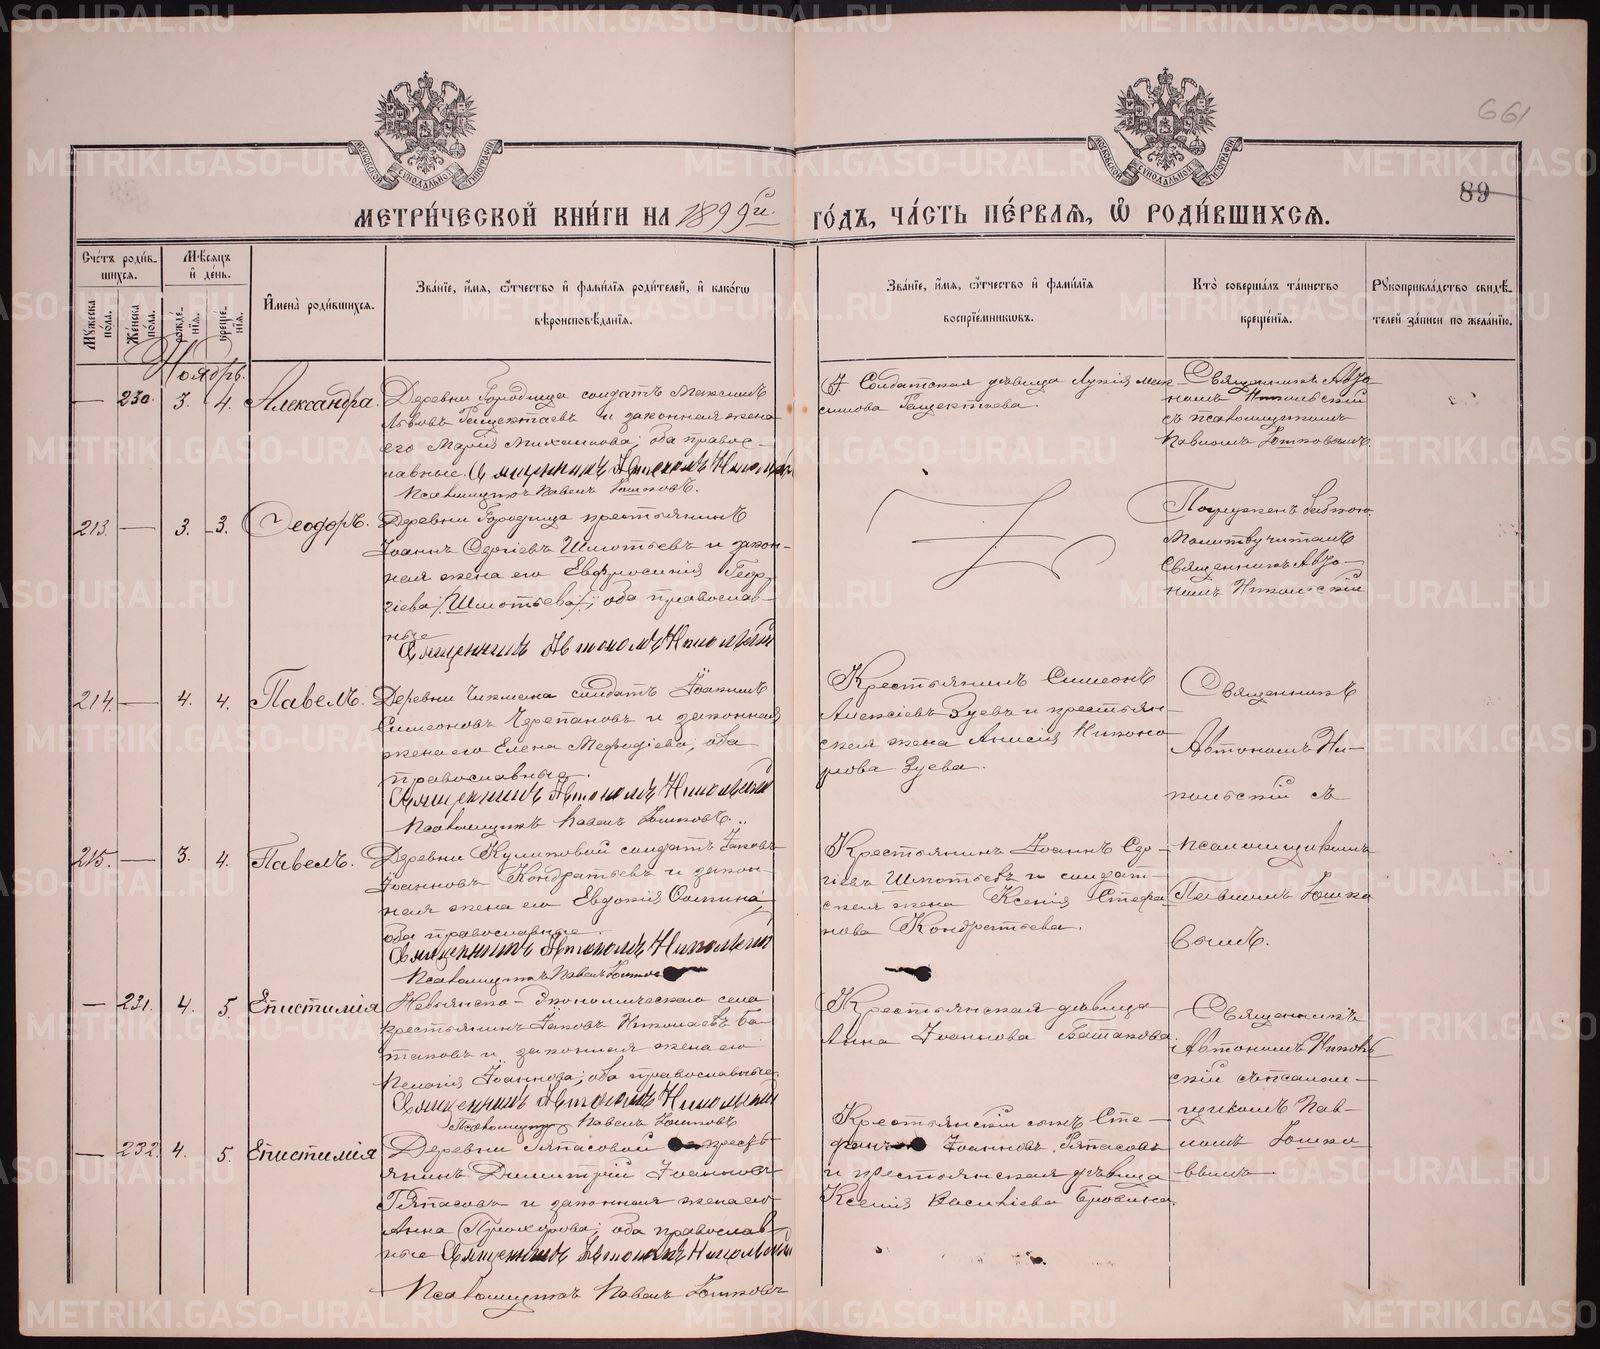 661
89
МЕТРИ́ЧЕСКОЙ КНИ́ГИ НА 1899й ГО́ДЪ, ЧА́СТЬ ПЕ́РВАѦ, Ѡ РОДИ́ВШИХСѦ.
Сче́тъ роди́в-
шихсѧ.
Мѣ́сѧцъ
и҆ де́нь.
Мꙋжеска по́ла.
Же́нска по́ла.
рожде́-
нїѧ.
креще́-
нїѧ.
И҆мена̀ роди́вшихсѧ.
Зва́нїе, и҆́мѧ, ѻ҆́тчество и҆ фами́лїѧ роди́телей, и҆ како́гѡ
вѣроисповѣ́данїѧ.
Зва́нїе, и҆́мѧ, ѻ҆́тчество и҆ фами́лїѧ
воспрїе́мникѡвъ.
Кто̀ соверша́лъ та́инство
креще́нїѧ.
Рꙋкоприкла́дство свидѣ́-
телей за́писи по жела́нїю.
Ноябрь.
— 230. 3. 4. Александра.
Деревни Городища солдатъ Максимъ
Львовъ и законная жена
его Марія Михаилова, оба правос-
лавные. Священникъ Автономъ Никольскій
Псаломщикъ Павелъ Юшковъ.
Солдатская дѣвица Лукія Мак-
симова
Священникъ Авто-
номъ Никольскій
съ псаломщикомъ
Павломъ Юшковымъ.
213. — 3. 3. Ѳеодоръ.
Деревни Городища крестьянинъ
Іоаннъ Шмотьевъ и закон-
ная жена его Евфросинія Геор-
гіева (Шмотьева); оба православ-
ные
Священникъ Автономъ Никольскій
Погруженъ бабкою
Молитву читалъ
Священникъ Авто-
номъ Никольскій
214. — 4. 4. Павелъ.
Деревни солдатъ Іоакимъ
Симеоновъ Черепановъ и законная
жена его Елена Меѳодіева, оба
православные.
Священникъ Автономъ Никольскій
Псаломщикъ Павелъ Юшковъ.
Крестьянинъ Симеонъ
Алексіевъ Зуевъ и крестьян-
ская жена Анисія Никоно-
рова Зуева.
Священникъ
Автономъ Ни-
кольскій съ
псаломщикомъ
Павломъ Юшко
вымъ.
215. — 3. 4. Павелъ.
Деревни Куликовой солдатъ Іаковъ
Іоанновъ Кондратьевъ и закон-
ная жена его Евдокія Ѳомина,
оба православные.
Священникъ Автономъ Никольскій
Псаломщикъ Павелъ
Крестьянинъ Іоаннъ
Шмотьевъ и солдат-
ская жена Ксенія Стефа
нова Кондратьева.
— 231. 4. 5. Епистимія
Невьянско-Экономическаго села
крестьянинъ Іаковъ Николаевъ Ба-
таковъ и законная жена его
Пелагія Іоаннова; оба православные.
Священникъ Автономъ Никольскій
Псаломщикъ Павелъ Юшковъ
Крестьянская дѣвица
Анна Іоаннова Батакова.
Священникъ
Автономъ Николь
скій съ псалом-
щикомъ Пав-
ломъ Юшко-
вымъ
— 232. 4. 5. Епистимія
Деревни Ряпасовой крестъ-
янинъ Димитрій Іоанновъ
Ряпасовъ и законная жена его
Анна Прохорова; оба православ-
ные Священникъ Автономъ Никольскій
Псаломщикъ Павелъ Юшковъ
Крестьянскій сынъ Сте-
фанъ Іоанновъ Ряпасовъ
и крестьянская дѣвица
Ксенія Василіева